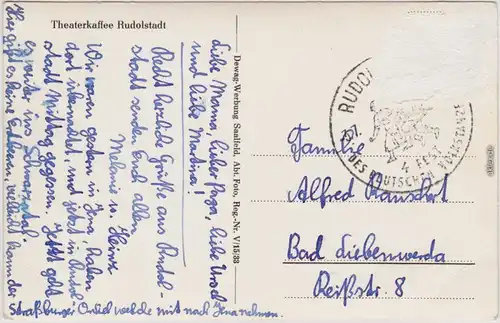 Theaterkaffee Rudolstadt
Liebe Mama, lieber Papa, liebe Ursel
und liebe Martina!
Recht herzliche Grüße aus Rudol-
stadt senden Euch allen
Melanie u. Heinz
Wir waren gestern in Jena, haben
dort übernachtet, und jetzt in Rudol-
stadt Mittag gegessen. Jetzt geht
es weiter ins Schwarzatal.
Hier gibt es keine Erdbeeren, vielleicht kann der
Straßburger Onkel welche mit nach Jena nehmen.
Dewag-Werbung Saalfeld, Abt. Foto, Reg.-Nr. V/15/33
RUDOL
4. FEST
DES DEUTSCHEN VOLKSTANZES
Familie
Alfred
Bad Liebenwerda
Reißstr. 8